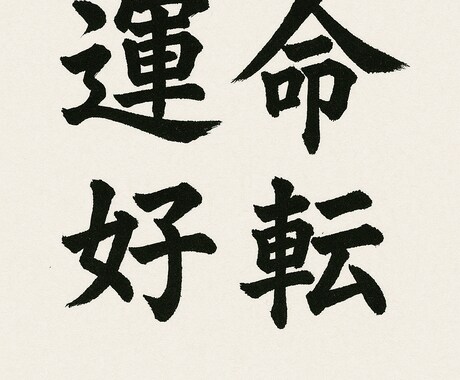 運命
好転